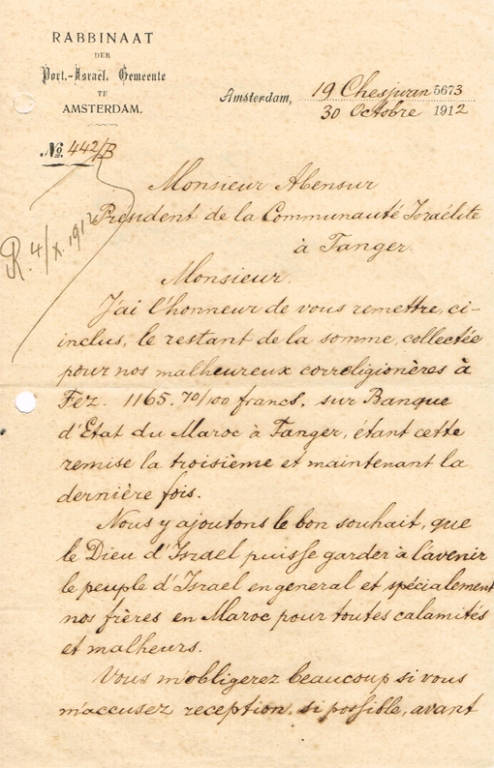 RABBINAAT
DER
Port.-Israël. Gemeente
TE
AMSTERDAM.
Amsterdam, 19 Chesjwan 5673
30 Octobre 1912
No. 442/B
R. 4/X. 1912
Monsieur Abensur
President de la Communauté Israélite
à Tanger.
Monsieur.
J'ai l'honneur de vous remettre, ci-
inclus, le restant de la somme, collectée
pour nos malheureux correligionères à
Fez. 1165. 70/100 francs. sur Banque
d'Etat du Maroc à Tanger, étant cette
remise la troisième et maintenant la
dernière fois.
Nous y ajoutons le bon souhait, que
le Dieu d'Israel puisse garder à l'avenir
le peuple d'Israel en general et spécialement
nos frères en Maroc pour toutes calamités
et malheurs.
Vous m'obligerez beaucoup si vous
m'accusez reception, si possible, avant